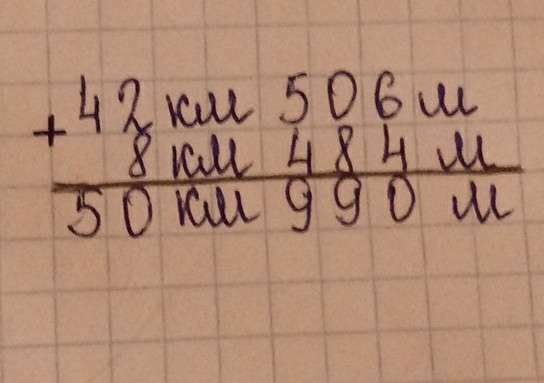 + 42 км 506 м
8 км 484 м
50 км 990 м